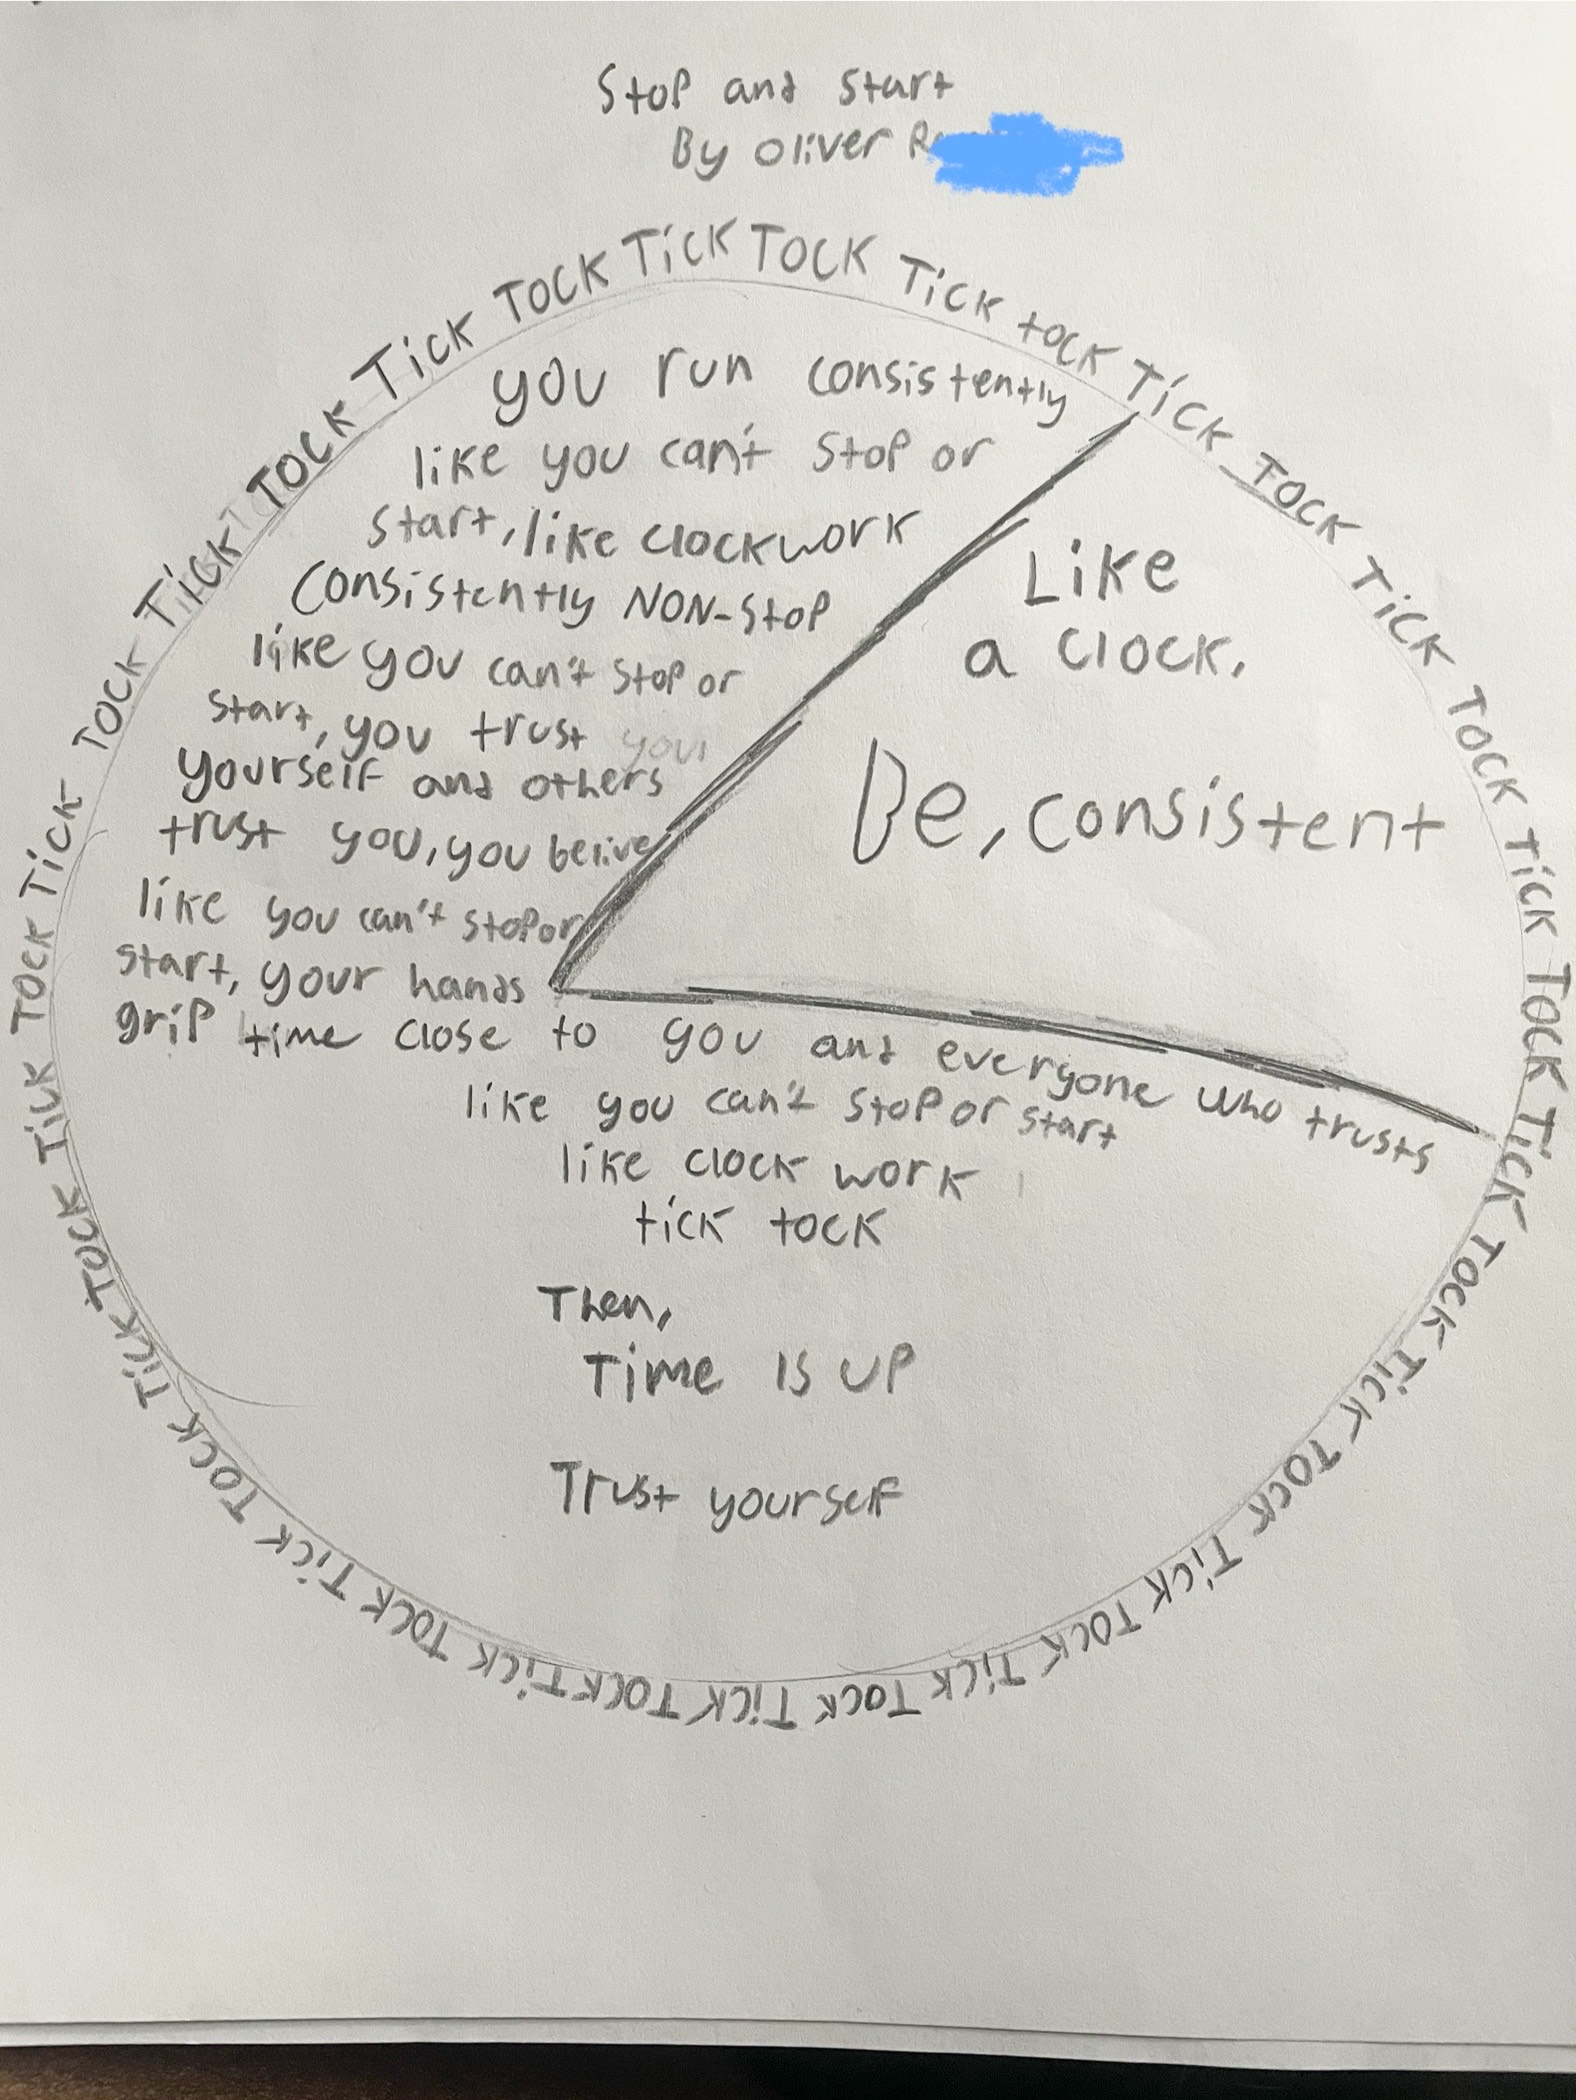 Stop and start
By Oliver R
TiCK TOCK TiCK tOCK TiCK TOCK TiCK TOCK TiCK TOCK TiCK TOCK TiCK TOCK TiCK TOCK TiCK TOCK TiCK TOCK TiCK TOCK TiCK TOCK TiCK TOCK TiCK TOCK TiCK TOCK TiCK TOCK TiCK TOCK
you run consistently
like you can't stop or
start, like clockwork
Consistently NON-stop
like you can't stop or
start, you trust
yourself and others
trust you, you belive
like you can't stop or
start, your hands
grip time close to you and everyone who trusts
like you can't stop or start
like clock work
tick tock
Then,
Time is up
Trust yourself
Like
a clock.
Be, consistent